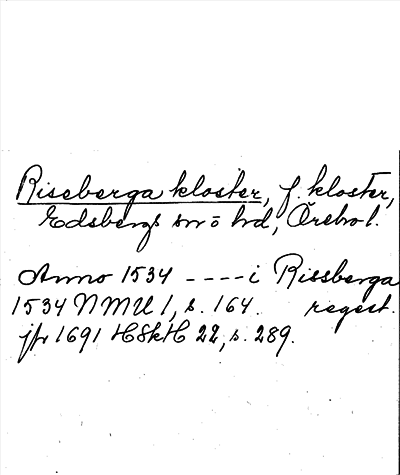 Riseberga kloster, f. kloster,
Edsbergs sn o hd, Örebro l.
Anno 1534 ---- i Rissberga
1534 NMU 1, s. 164. regest.
jfr 1691 HSkH 22, s. 289.